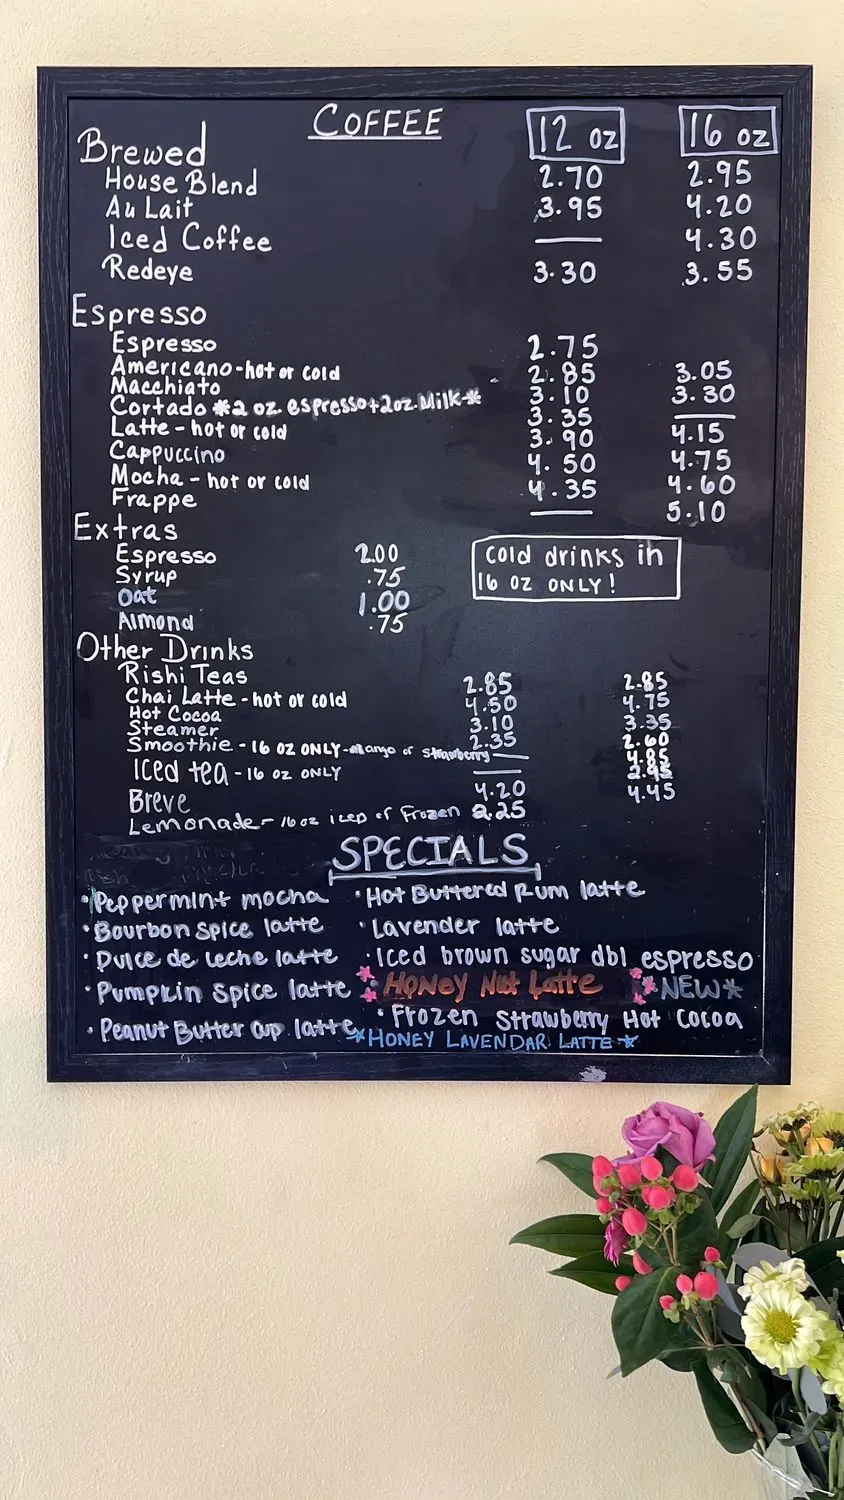 COFFEE 12 oz 16 oz
Brewed
House Blend 2.70 2.95
Au Lait 3.95 4.20
Iced Coffee — 4.30
Redeye 3.30 3.55
Espresso
Espresso 2.75
Americano - hot or cold 2.85 3.05
Macchiato 3.10 3.30
Cortado *2 oz. espresso + 2oz. Milk* 3.35 —
Latte - hot or cold 3.90 4.15
Cappuccino 4.50 4.75
Mocha - hot or cold 4.35 4.60
Frappe — 5.10
Extras
Espresso 2.00
Syrup .75
Oat 1.00
Almond .75
cold drinks in
16 OZ ONLY!
Other Drinks
Rishi Teas 2.85 2.85
Chai Latte - hot or cold 4.50 4.75
Hot Cocoa 3.10 3.35
Steamer 2.35 2.60
Smoothie - 16 OZ ONLY - mango or strawberry — 4.85
Iced tea - 16 OZ ONLY — 2.95
Breve 4.20 4.45
Lemonade - 16 oz iced or Frozen 2.25
SPECIALS
• Peppermint mocha • Hot Buttered Rum latte
• Bourbon Spice latte • Lavender latte
• Dulce de leche latte • Iced brown sugar dbl espresso
• Pumpkin Spice latte • Honey Nut Latte *NEW*
• Peanut Butter Cup latte • Frozen Strawberry Hot Cocoa
*HONEY LAVENDAR LATTE*